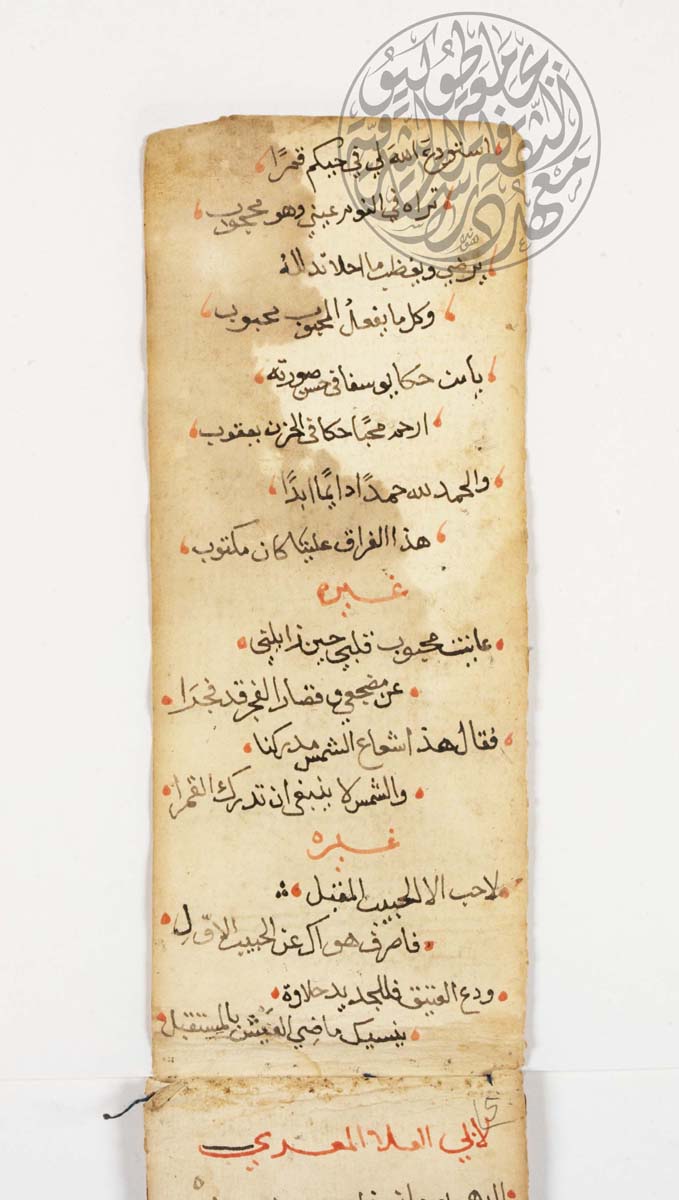 استودع الله لي في حيكم قمرًا
تراه في النوم عيني وهو محجوب
يرضي ويغضب ما احلا تدلله
وكل ما يفعل المحبوب محبوب
يا من حكا يوسفا في حسن صورته
ارحم محبًا حكا في الحزن يعقوب
والحمد لله حمدًا دايمًا ابدًا
هذا الفراق علينا كان مكتوب
غيره
عانيت محبوب قلبي حين
عن مضجعي فصار الفجر قد فجرا
فقال هذا شعاع الشمس مدركنا
والشمس لا ينبغي ان تدرك القمرا
غيره
لا حب الا للحبيب المقبل
فاصرف هواك عن الحبيب الاول
ودع العتيق فللجديد حلاوة
ينسيك ماضي العيش بالمستقبل
لابي العلا المعري